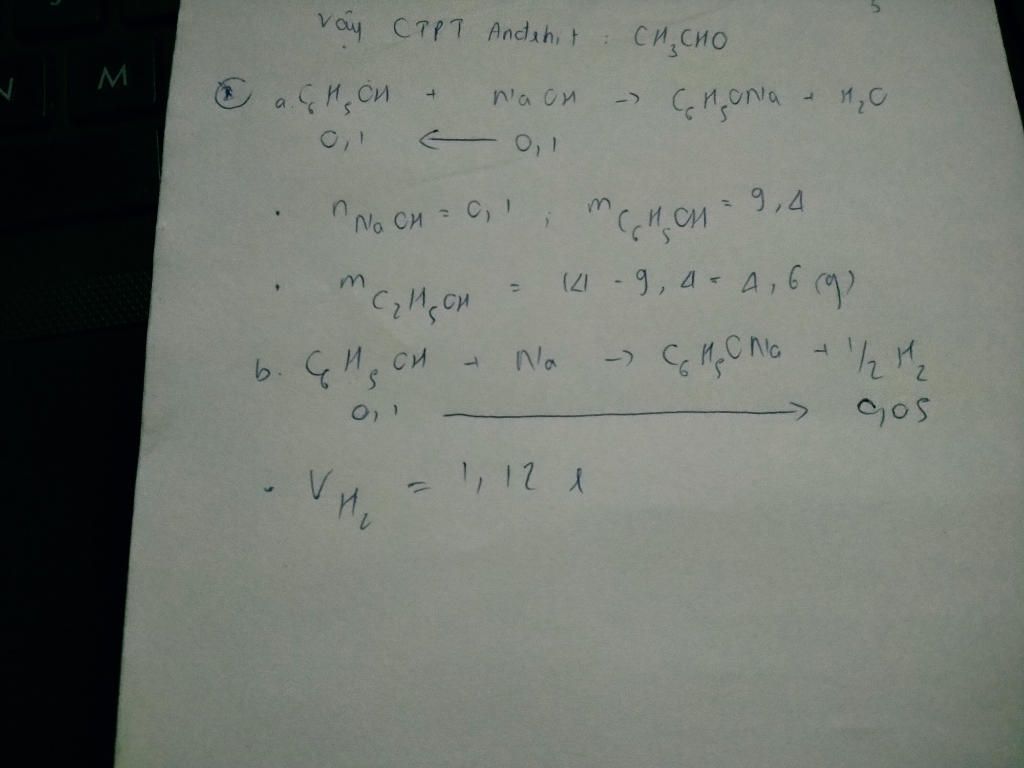 Vậy CTPT Andehit : CH₃CHO
a. C₆H₅OH + NaOH → C₆H₅ONa + H₂O
0,1 ← 0,1
. nNaOH = 0,1 ; mC₆H₅OH = 9,4
. mC₂H₅OH = 14 - 9,4 = 4,6 (g)
b. C₆H₅OH + Na → C₆H₅ONa + 1/2 H₂
0,1 → 0,05
. VH₂ = 1,12 l
M